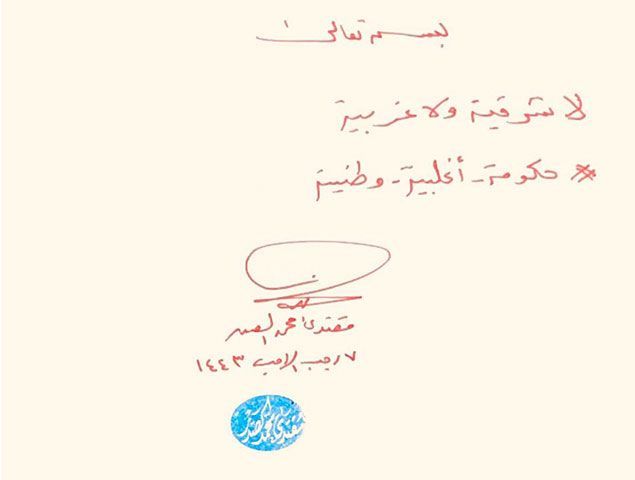 بسمه تعالى
لا شرقية ولا غربية
* حكومة - أغلبية - وطنية
مقتدى محمد الصدر
٧ رجب الأصب ١٤٤٣